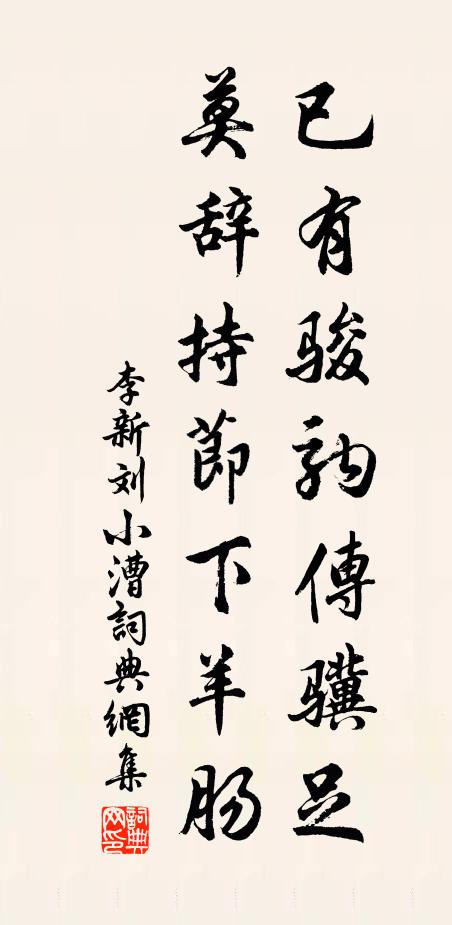 已有骏驹傳骥足
莫辞持節下羊肠
李新刘小漕詞典網集
詞典网印